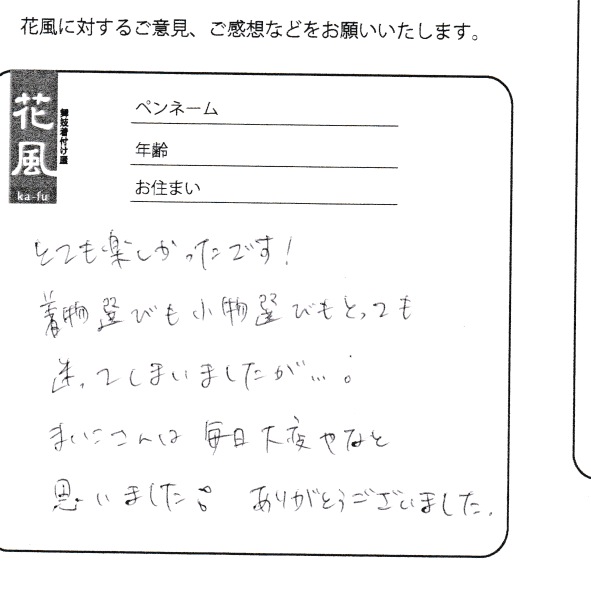 花風に対するご意見、ご感想などをお願いいたします。
花風
ka-fu
舞妓着付け屋
ペンネーム
年齢
お住まい
とても楽しかったです!
着物選びも小物選びもとっても
迷ってしまいましたが…。
まいこさんは毎日大変やなと
思いました。ありがとうございました。